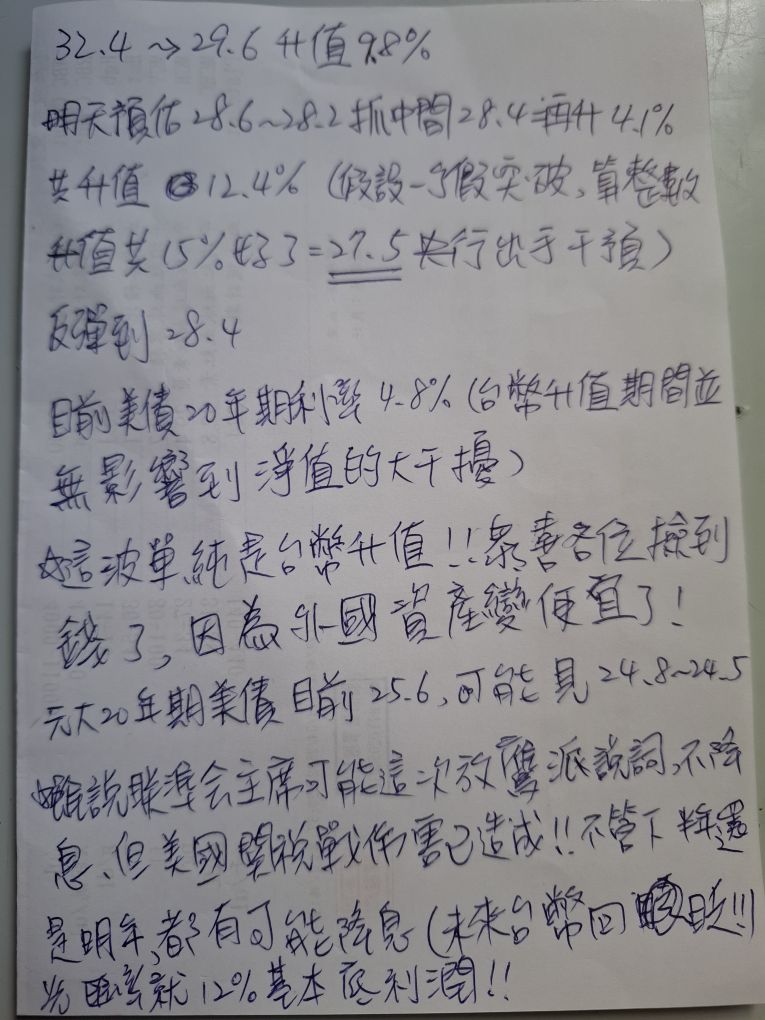 32.4 → 29.6 升值 9.8%
明天預估 28.6~28.2 抓中間 28.4 再升 4.1%
共升值 12.4% (假設一个假突破,算整數
升值共 15% 好了 = 27.5 央行出手干預)
反彈到 28.4
目前美債20年期利率 4.8% (台幣升值期間並
無影響到淨值的大干擾)
這波單純是台幣升值!!恭喜各位撿到
錢了,因為外國資產變便宜了!
元大20年期美債目前 25.6,可能見 24.8~24.5
雖說聯準会主席可能這次放鷹派說詞,不降
息,但美國關稅戰傷害已造成!!不管下半年還
是明年,都有可能降息(未來台幣回貶!!)
光匯率就 12% 基本底利潤!!